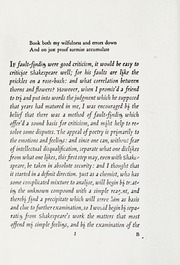 Book both my wilfulness and errors down
And on just proof surmise accumulate
IF fault-finding were good criticism, it would be easy to
criticize Shakespeare well; for his faults are like the
prickles on a rose-bush: and what correlation between
thorns and flowers? However, when I promis'd a friend
to try and put into words the judgment which he supposed
that years had matured in me, I was encouraged by the
belief that there was a method of fault-finding which
offer'd a sound basis for criticism, and might help to re-
solve some disputes. The appeal of poetry is primarily to
the emotions and feelings: and since one can, without fear
of intellectual disqualification, separate what one dislikes
from what one likes, this first step may, even with Shake-
speare, be taken in absolute security: and I thought that
it started in a definit direction. Just as a chemist, who has
some complicated mixture to analyze, will begin by treat-
ing the unknown compound with a simple reagent, and
thereby find a precipitate which will serve him as basis
and clue to further examination, so I would begin by sepa-
rating from Shakespeare's work the matters that most
offend my simple feelings, and by the examination of the
I B